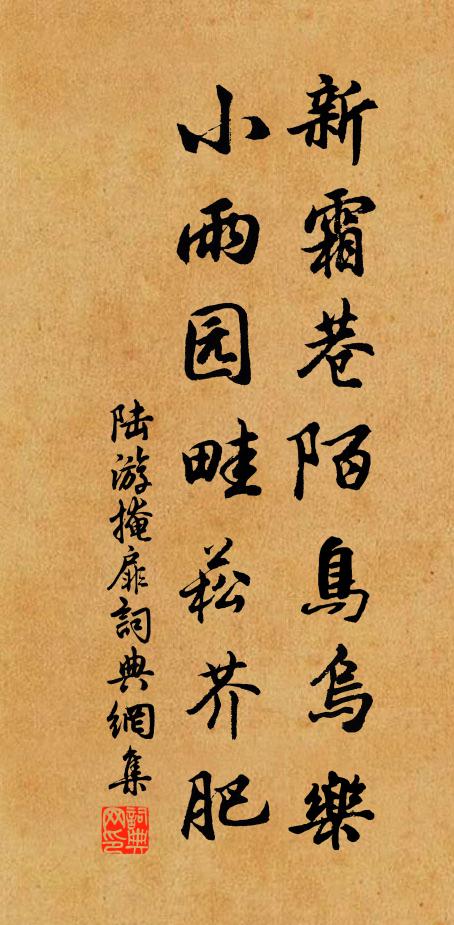 新霜巷陌鳥烏樂
小雨园畦菘芥肥
陆游掩扉詞典網集
詞典网印